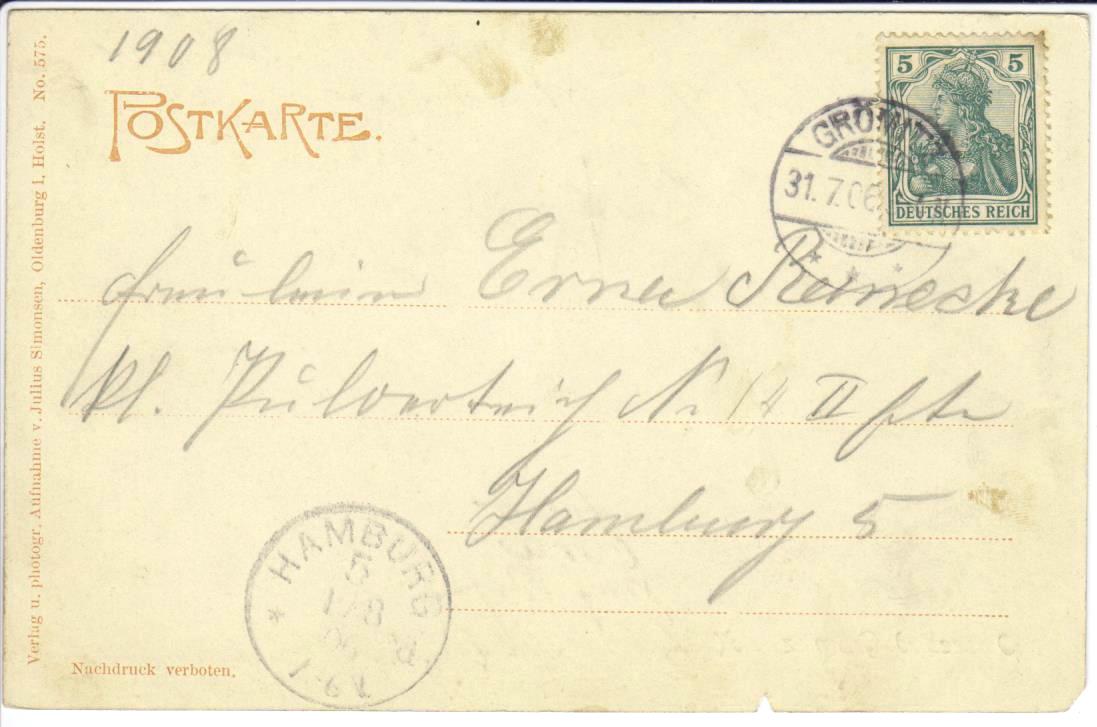 1908
POSTKARTE.
5 5
DEUTSCHES REICH
GRÖMITZ
31.7.06
Fräulein Erna Reinecke
kl. Pulverteich No 14 II
Hamburg 5
HAMBURG
5
1/8
06
Nachdruck verboten.
Verlag u. photogr. Aufnahme v. Julius Simonsen, Oldenburg i. Holst. No. 575.